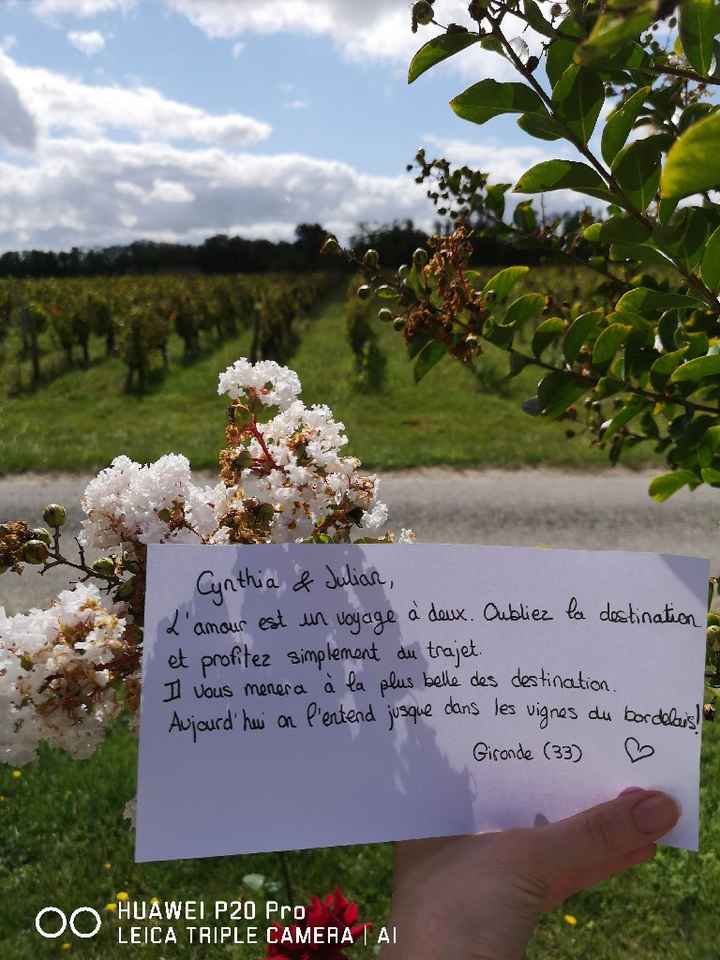 Cynthia & Julian,
L'amour est un voyage à deux. Oubliez la destination
et profitez simplement du trajet.
Il vous menera à la plus belle des destination.
Aujourd'hui on l'entend jusque dans les vignes du bordelais!
Gironde (33) ♡
HUAWEI P20 Pro
LEICA TRIPLE CAMERA | AI